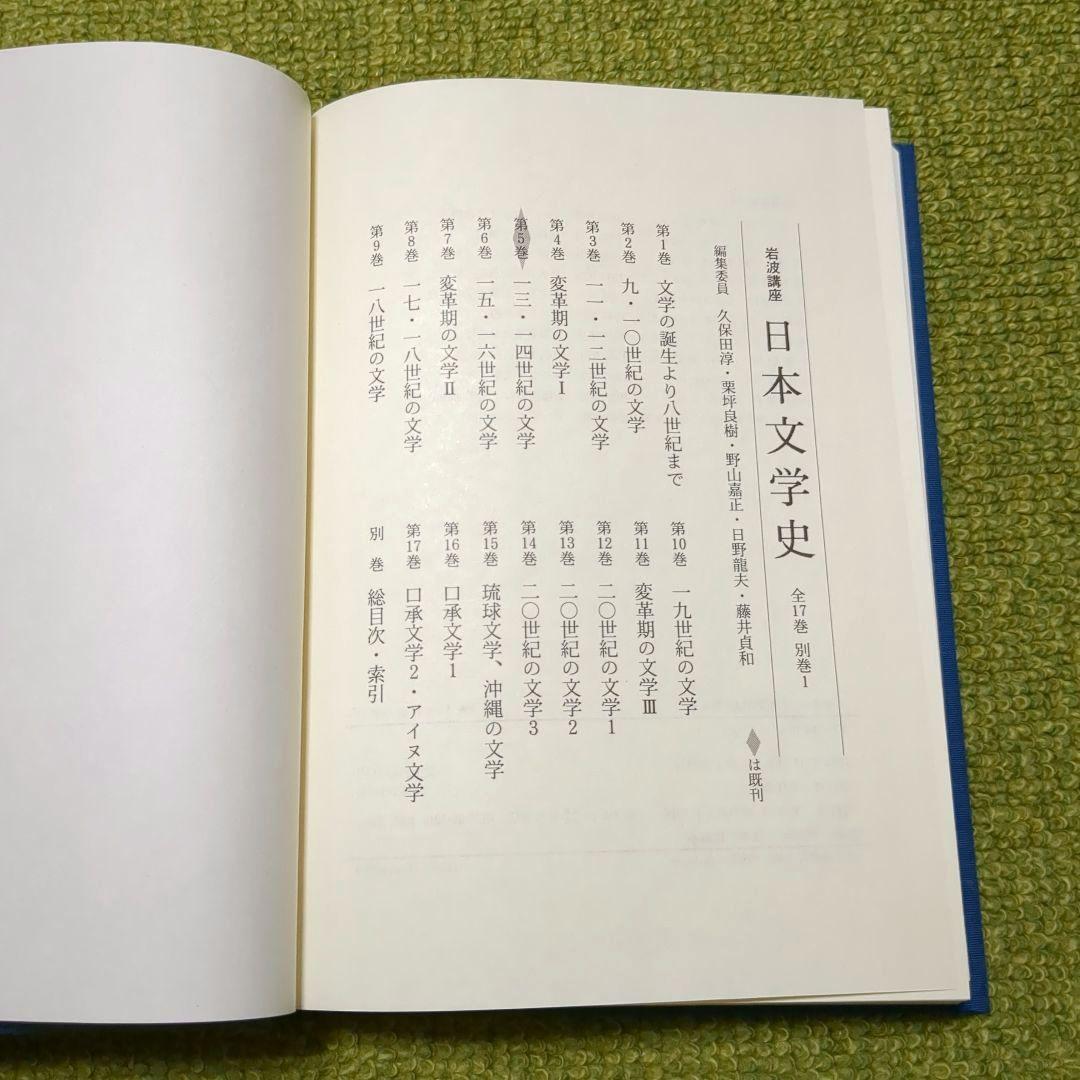 岩波講座 日本文学史 全17巻 別巻1
編集委員 久保田淳・栗坪良樹・野山嘉正・日野龍夫・藤井貞和
は既刊
第1巻 文学の誕生より八世紀まで
第2巻 九・一〇世紀の文学
第3巻 一一・一二世紀の文学
第4巻 変革期の文学Ⅰ
第5巻 一三・一四世紀の文学
第6巻 一五・一六世紀の文学
第7巻 変革期の文学Ⅱ
第8巻 一七・一八世紀の文学
第9巻 一八世紀の文学
第10巻 一九世紀の文学
第11巻 変革期の文学Ⅲ
第12巻 二〇世紀の文学1
第13巻 二〇世紀の文学2
第14巻 二〇世紀の文学3
第15巻 琉球文学、沖縄の文学
第16巻 口承文学1
第17巻 口承文学2・アイヌ文学
別巻 総目次・索引